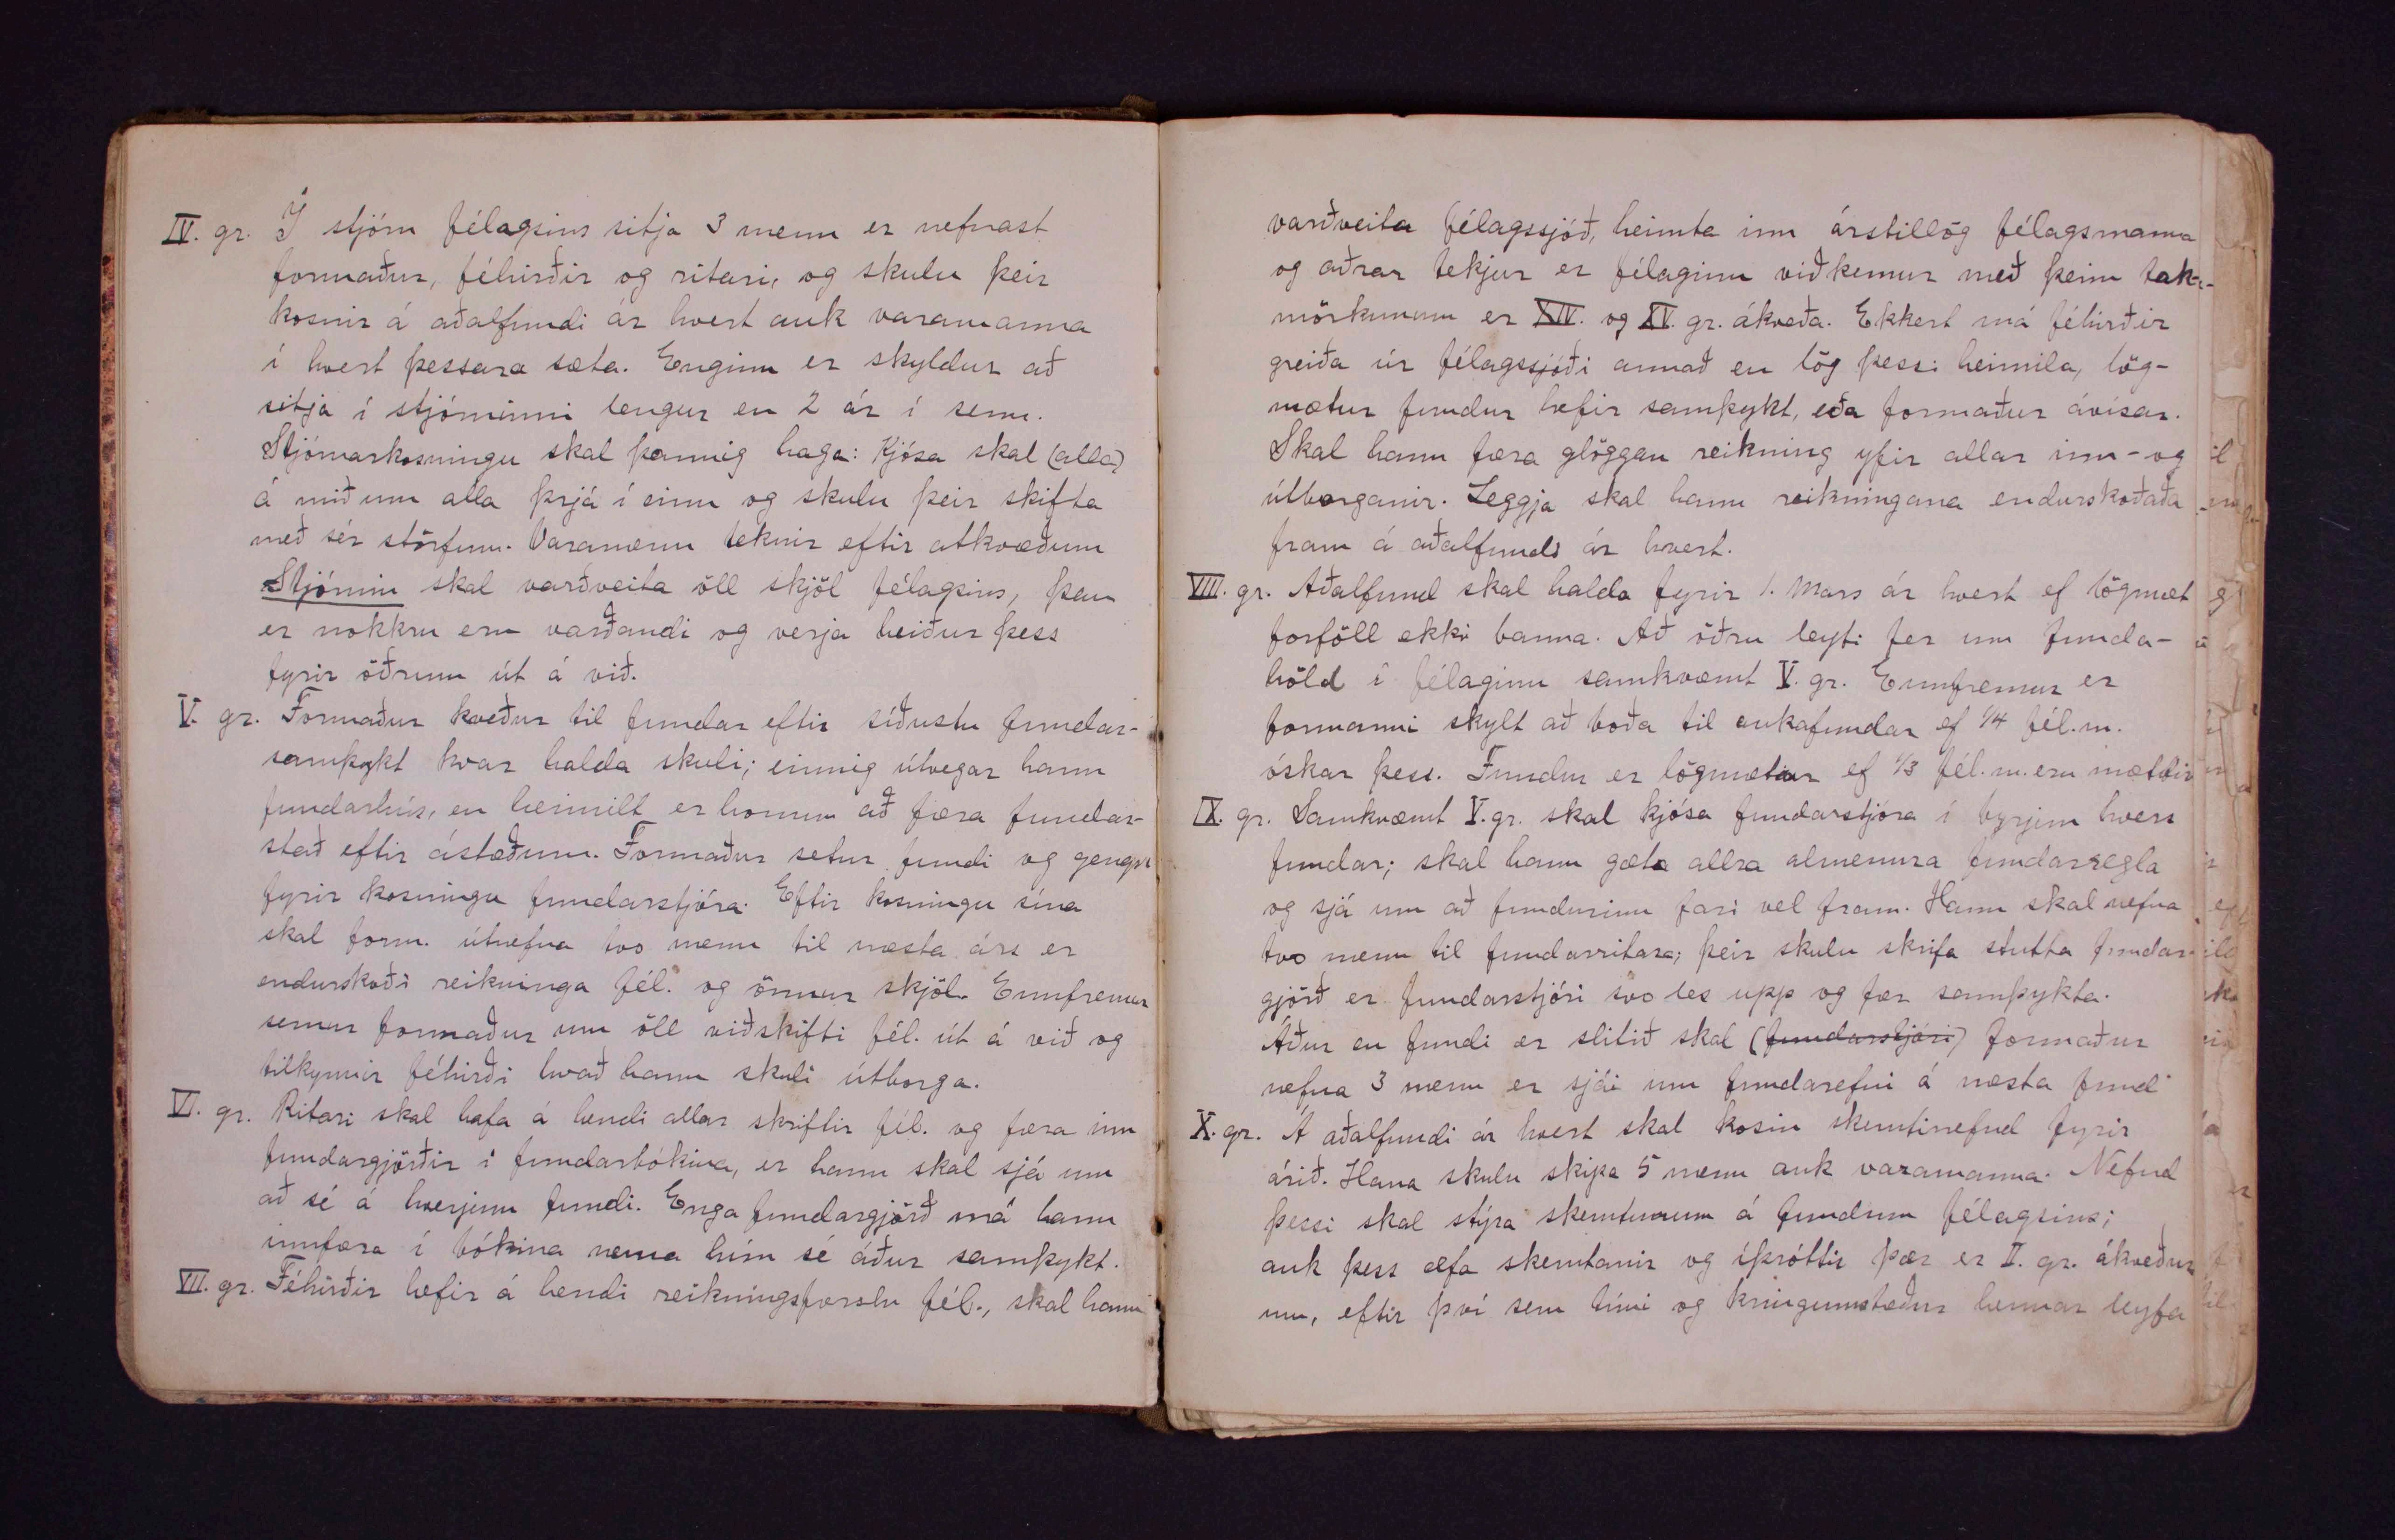 IV. gr. Í stjórn félagsins sitja 3 menn er nefnast
formaður, féhirðir og ritari, og skulu þeir
kosnir á aðalfundi ár hvert auk varamanna
í hvert þessara sæta. Enginn er skyldur að
sitja í stjórninni lengur en 2 ár í senn.
Stjórnarkosningu skal þannig haga: Kjósa skal (alla)
á miðum alla þrjá í einu og skulu þeir skifta
með sér störfum. Varamenn teknir eftir atkvæðum
Stjórnin skal varðveita öll skjöl félagsins, þau
er nokkru eru varðandi og verja heiður þess
fyrir öðrum út á við.
V. gr. Formaður kveður til fundar eftir síðustu fundar-
samþykt hvar halda skuli; einnig útvegar hann
fundarhús, en heimilt er honum að færa fundar-
stað eftir ástæðum. Formaður setur fundi og gengst
fyrir kosningu fundarstjóra. Eftir kosningu sína
skal form. útnefna tvo menn til næsta árs er
endurskoði reikninga fél. og önnur skjöl. Ennfremur
semur formaður um öll viðskifti fél. út á við og
tilkynnir féhirði hvað hann skuli útborga.
VI. gr. Ritari skal hafa á hendi allar skriftir fél. og færa inn
fundargjörðir í fundarbókina, er hann skal sjá um
að sé á hverjum fundi. Enga fundargjörð má hann
innfæra í bókina nema hún sé áður samþykt.
VII. gr. Féhirðir hefir á hendi reikningsfærslu fél., skal hann
varðveita félagssjóð, heimta inn árstillög félagsmanna
og aðrar tekjur er félaginu viðkemur með þeim tak-
mörkunum er XIV. og XV. gr. ákveða. Ekkert má féhirðir
greiða úr félagssjóði annað en lög þessi heimila, lög-
mætur fundur hefir samþykt, eða formaður ávísar.
Skal hann færa glöggan reikning yfir allar inn- og
útborganir. Leggja skal hann reikningana endurskoðaða
fram á aðalfundi ár hvert.
VIII. gr. Aðalfund skal halda fyrir 1. Mars ár hvert ef lögmæt
forföll ekki banna. Að öðru leyti fer um funda-
höld í félaginu samkvæmt V. gr. Ennfremur er
formanni skylt að boða til aukafundar ef 1/4 fél.m.
óskar þess. Fundur er lögmætur ef 1/3 fél.m. eru mættir
IX. gr. Samkvæmt V. gr. skal kjósa fundarstjóra í byrjun hvers
fundar; skal hann gæta allra almennra fundarregla
og sjá um að fundurinn fari vel fram. Hann skal nefna
tvo menn til fundarritara; þeir skulu skrifa stutta fundar-
gjörð er fundarstjóri svo les upp og fær samþykta.
Áður en fundi er slitið skal (fundarstjóri) formaður
nefna 3 menn er sjái um fundarefni á næsta fundi
X. gr. Á aðalfundi ár hvert skal kosin skemtinefnd fyrir
árið. Hana skulu skipa 5 menn auk varamanna. Nefnd
þessi skal stýra skemtunum á fundum félagsins;
auk þess æfa skemtanir og íþróttir þær er II. gr. ákveður
um, eftir því sem tími og kringumstæður hennar leyfa